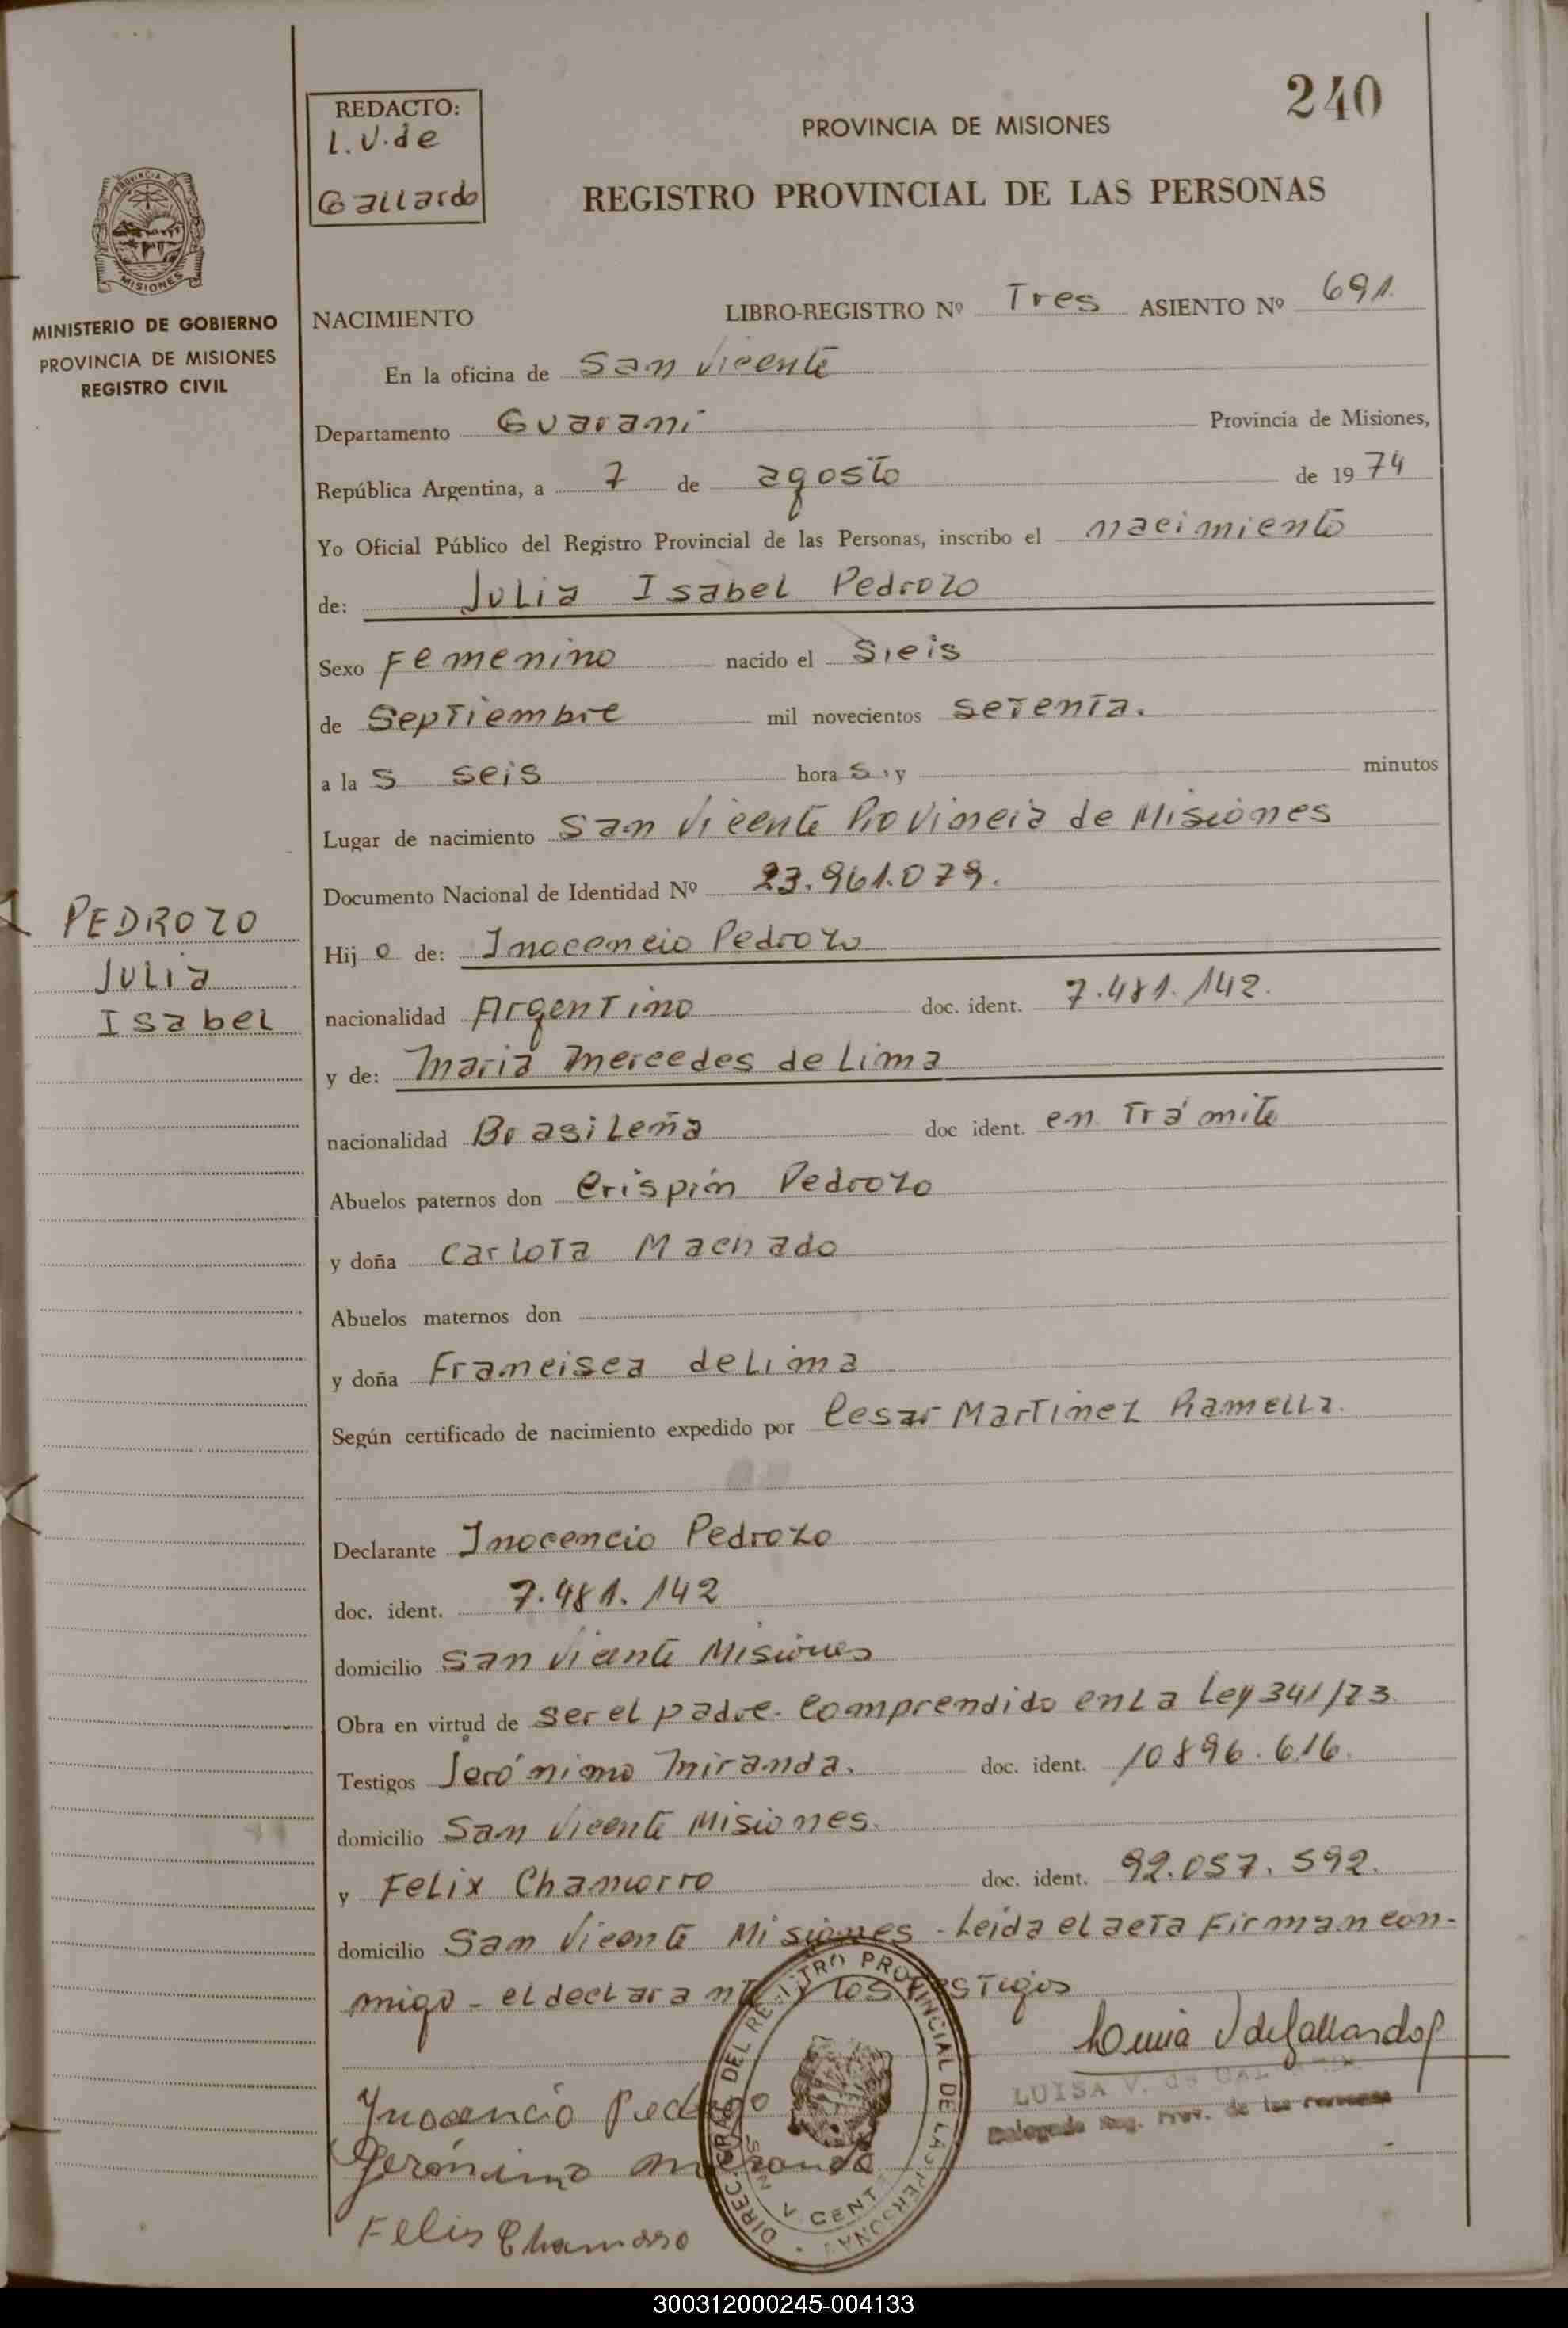 240
REDACTO:
L.V. de
Gallardo
PROVINCIA DE MISIONES
REGISTRO PROVINCIAL DE LAS PERSONAS
PROVINCIA DE
MISIONES
MINISTERIO DE GOBIERNO
PROVINCIA DE MISIONES
REGISTRO CIVIL
NACIMIENTO LIBRO-REGISTRO Nº Tres ASIENTO Nº 691.
En la oficina de San Vicente
Departamento Guaraní Provincia de Misiones,
República Argentina, a 7 de agosto de 1974
Yo Oficial Público del Registro Provincial de las Personas, inscribo el nacimiento
de: Julia Isabel Pedrozo
Sexo Femenino nacido el Sieis
de Septiembre mil novecientos setenta.
a las seis horas, y minutos
Lugar de nacimiento San Vicente Provincia de Misiones
Documento Nacional de Identidad Nº 23.961.079.
PEDROZO
Julia
Isabel
Hijo de: Inocencio Pedrozo
nacionalidad Argentino doc. ident. 7.481.142.
y de: Maria Mercedes de Lima
nacionalidad Brasileña doc ident. en Trámite
Abuelos paternos don Crispín Pedrozo
y doña Carlota Machado
Abuelos maternos don
y doña Francisca de Lima
Según certificado de nacimiento expedido por Cesar Martinez Ramella.
Declarante Inocencio Pedrozo
doc. ident. 7.481.142
domicilio San Vicente Misiones
Obra en virtud de ser el padre. Comprendido en La Ley 341/73.
Testigos Jerónimo Miranda. doc. ident. 10896.616.
domicilio San Vicente Misiones.
y Felix Chamorro doc. ident. 92.057.592.
domicilio San Vicente Misiones - Leída el acta Firman con-
migo - el declarante y los Testigos
Luisa V de Gallardo
LUISA V. de GAL
Delegada Reg. Prov. de las Personas
Inocencio Pedrozo
Gerónimo Miranda
Felix Chamorro
DIREC. GRAL. DEL REGISTRO PROVINCIAL DE LAS PERSONAS
SAN VICENTE
300312000245-004133